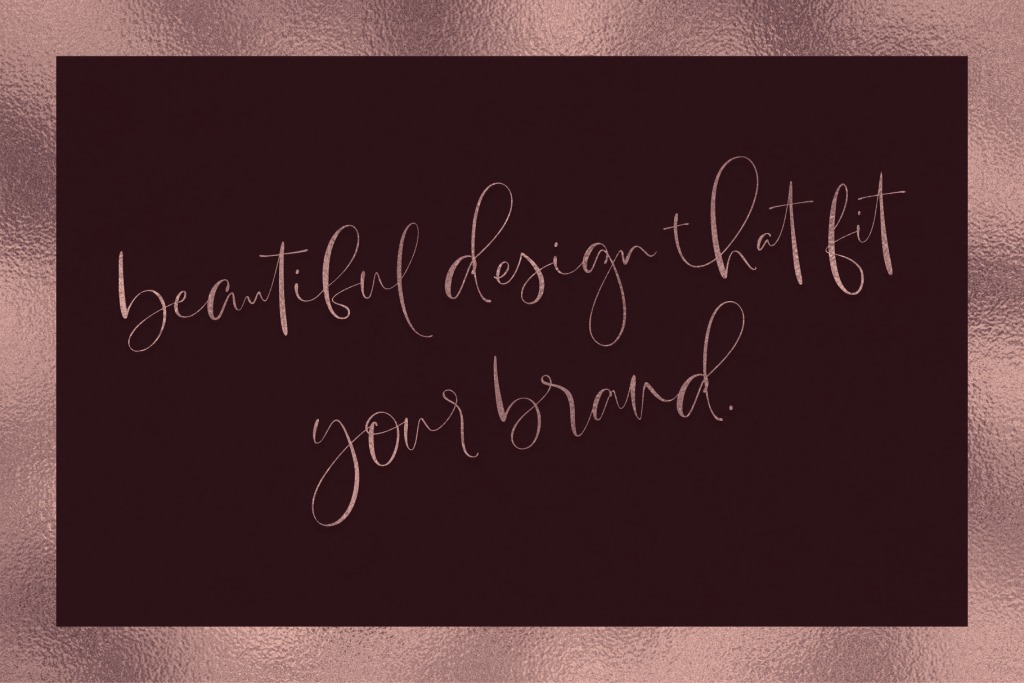 beautiful design that fit
your brand.